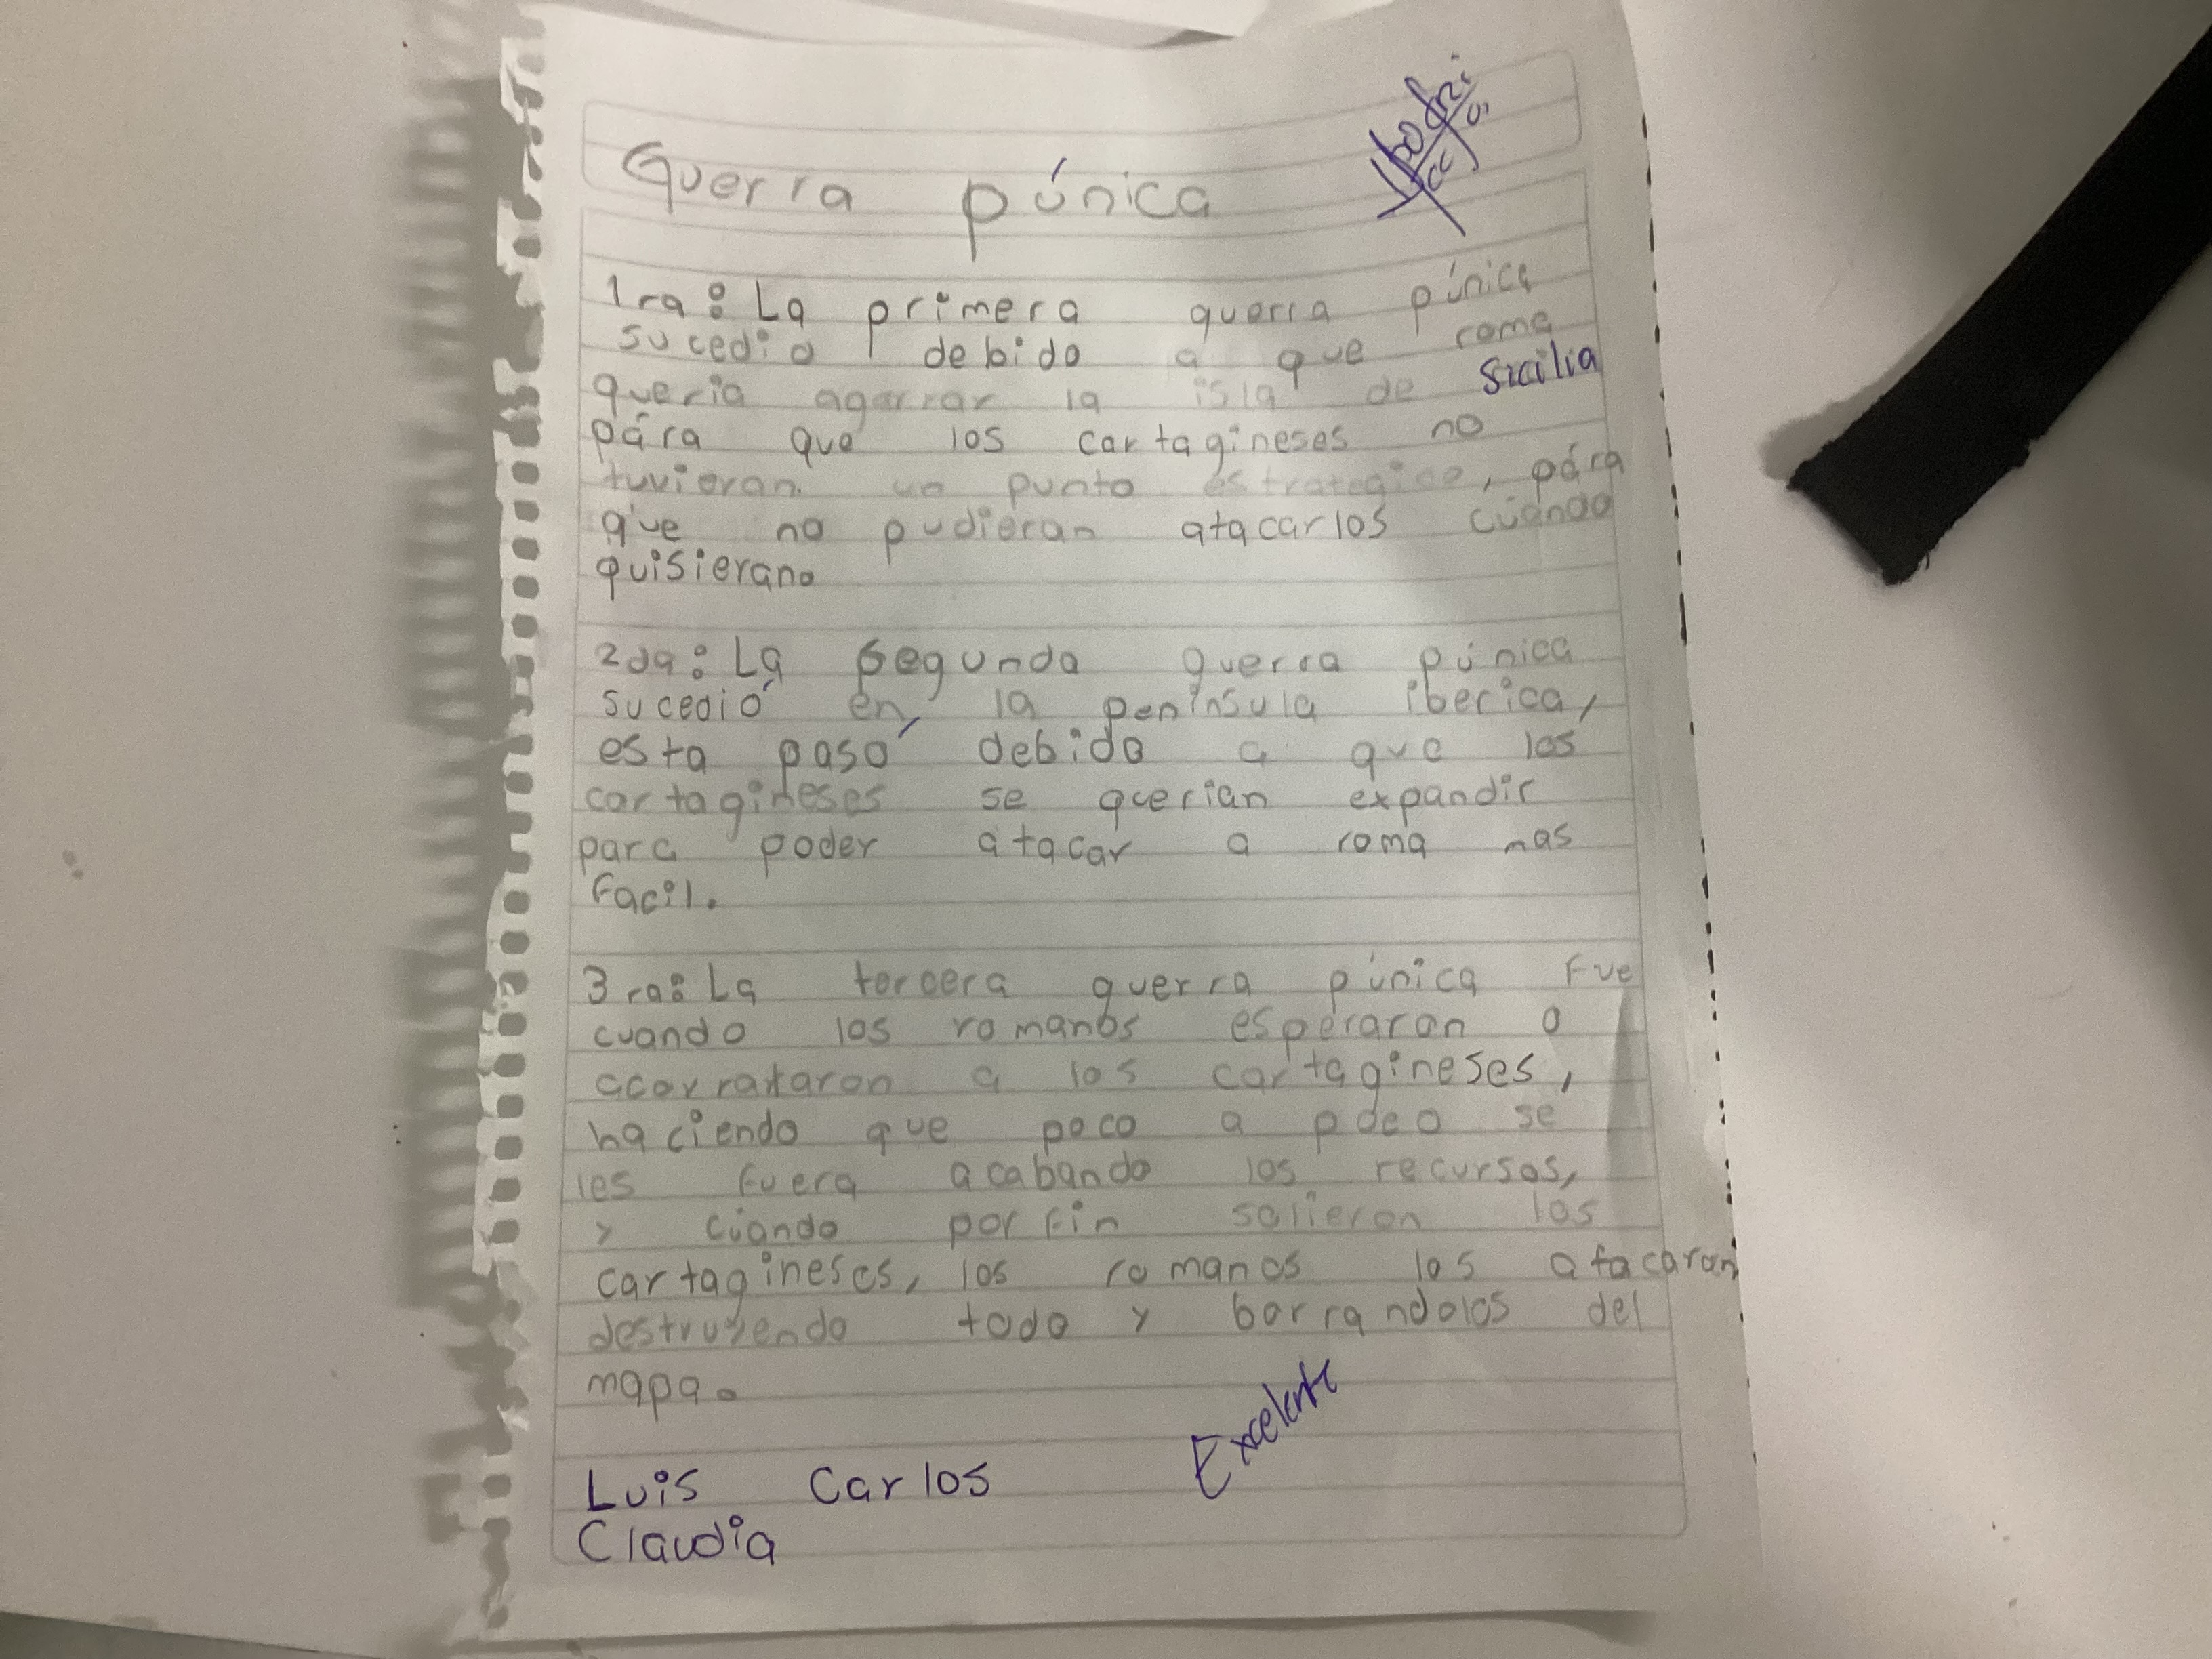 Guerra púnica
1ra: La primera guerra púnica
sucedio debido a que roma
queria agarrar la isla de Sicilia
pára que los cartagineses no
tuvieran un punto estrategico, pára
que no pudieran atacarlos cuando
quisieran.
2da: La segunda guerra púnica
sucedió en la península iberica,
esta pasó debido a que los
cartagineses se querian expandir
para poder atacar a roma mas
facil.
3ra: La tercera guerra púnica fue
cuando los romanos esperaron o
acorralaron a los cartagineses,
haciendo que poco a poco se
les fuera acabando los recursos,
y cuando por fin salieron los
cartagineses, los romanos los atacaron
destruyendo todo y borrandolos del
mapa.
Excelente
Luis Carlos
Claudia